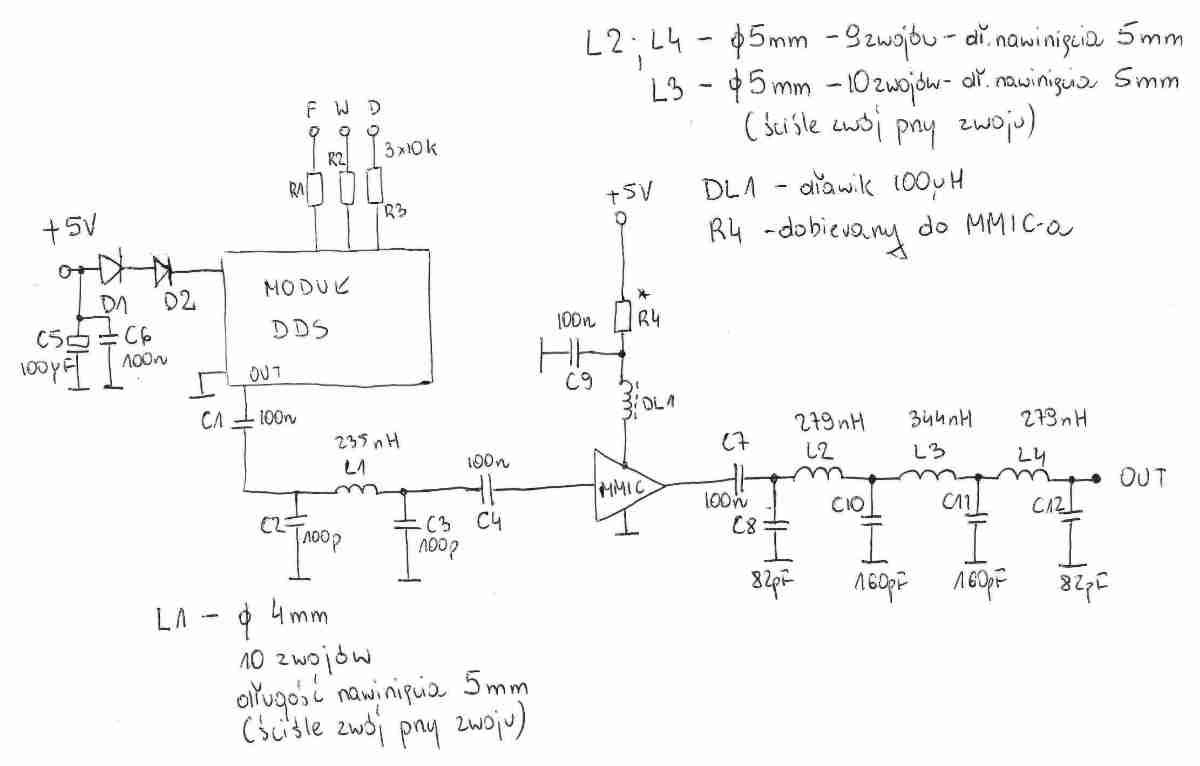 L2, L4 - ϕ5mm - 9 zwojów - dł. nawinięcia 5mm
L3 - ϕ5mm - 10 zwojów - dł. nawinięcia 5mm
(ściśle zwój przy zwoju)
DL1 - dławik 100µH
R4 - dobierany do MMIC-a
F W D
3x10k
R1
R2
R3
+5V
D1 D2
MODUŁ
DDS
OUT
C5
100µF
C6
100n
C1 100n
235nH
L1
C2
100p
C3
100p
100n
C4
+5V
*
R4
100n
C9
DL1
MMIC
C7
100n
C8
82pF
279nH
L2
C10
160pF
344nH
L3
C11
160pF
279nH
L4
C12
82pF
OUT
L1 - ϕ 4mm
10 zwojów
długość nawinięcia 5mm
(ściśle zwój przy zwoju)